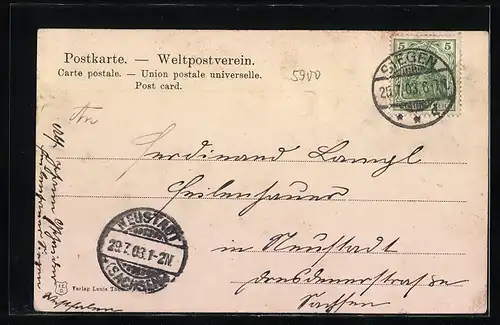 Postkarte. — Weltpostverein.
Carte postale. — Union postale universelle.
Post card.
5900
5 5
SIEGEN
25.7.03.6-7N
* * 1
An
Ferdinand Lampl
Feilenhauer
in Neustadt
Dresdenerstraße
Sachsen
NEUSTADT
29.7.03.1-2N
(SACHSEN)
Verlag Louis
Westfalen